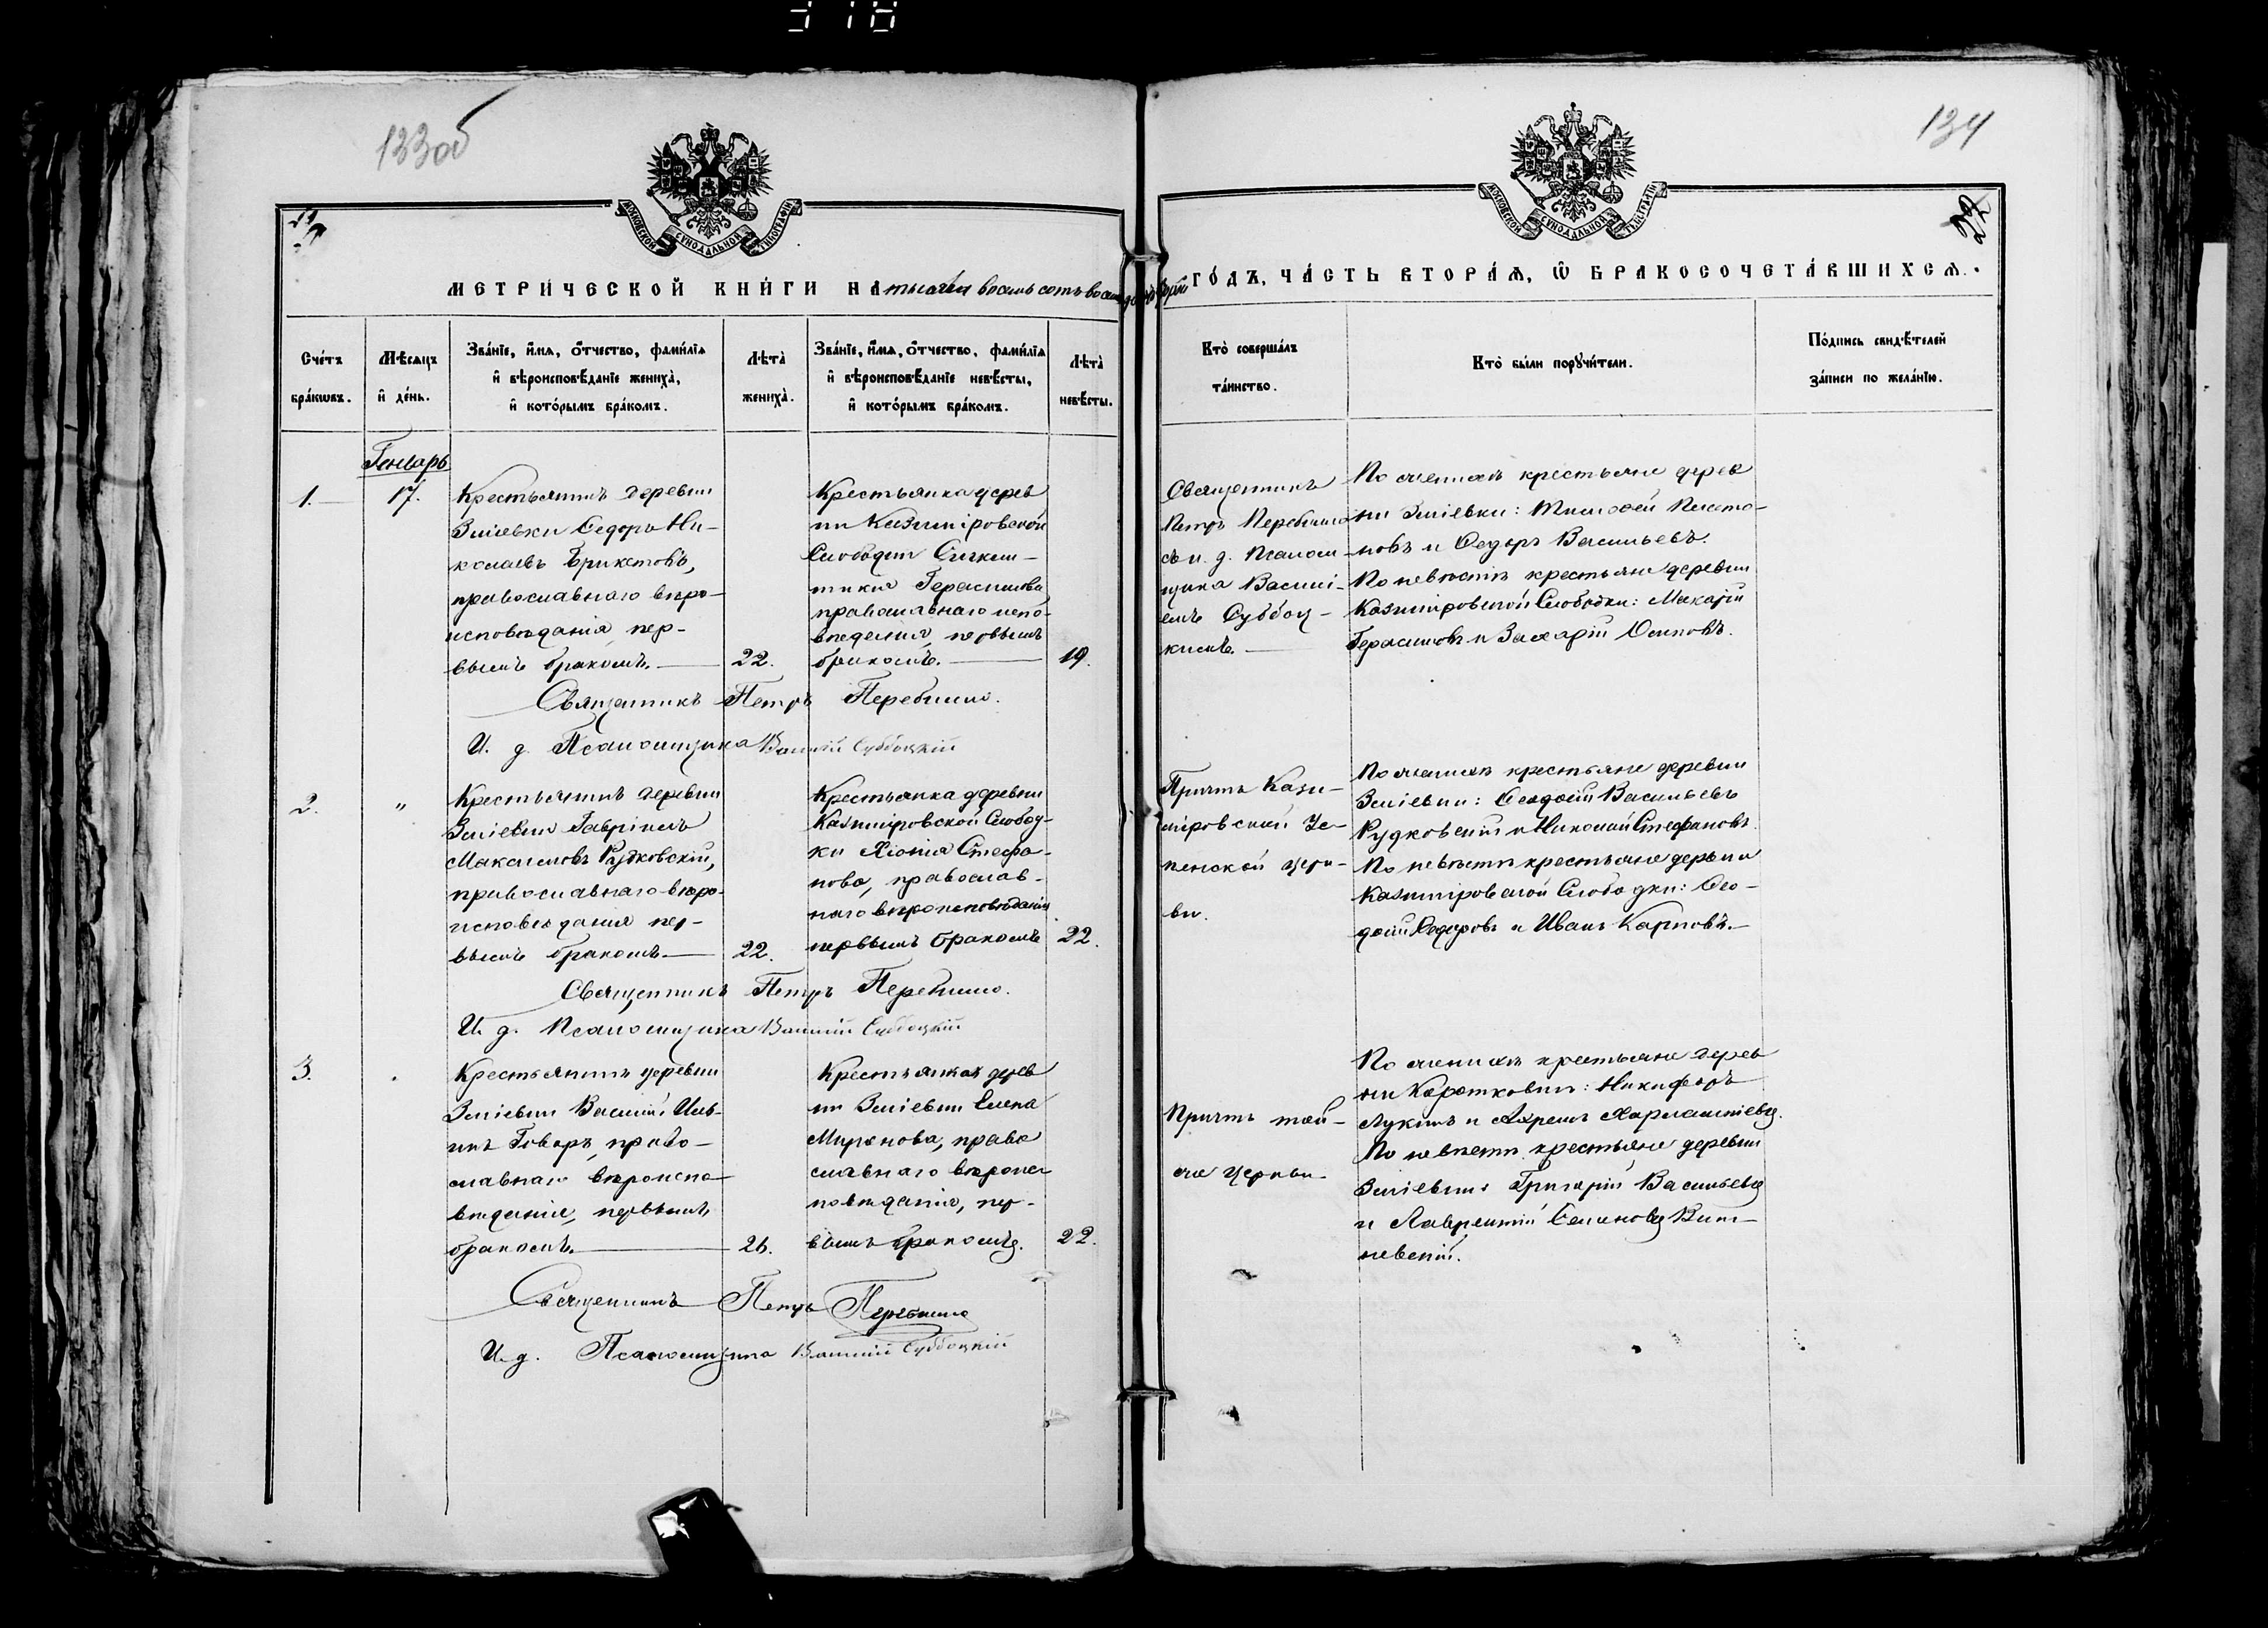 318
133об
134
22
МОСКОВСКОЙ СѴНОДАЛЬНОЙ ТИПОГРАФІИ
МОСКОВСКОЙ СѴНОДАЛЬНОЙ ТИПОГРАФІИ
МЕТРИ́ЧЕСКОЙ КНИ́ГИ НА тысяча восемь сотъ
ГО́ДЪ, ЧА́СТЬ ВТОРА́Ѧ, Ѽ БРАКОСОЧЕТА́ВШИХСѦ.
Сче́тъ
бра́кѡвъ.
Мѣ́сяцъ
и де́нь.
Зва́нїе, и́мѧ, о́тчество, фами́лїѧ
и вѣроисповѣ́данїе жениха̀,
и кото́рымъ бра́комъ.
Лѣта̀
жениха̀.
Зва́нїе, и́мѧ, о́тчество, фами́лїѧ
и вѣроисповѣ́данїе невѣ́сты,
и кото́рымъ бра́комъ.
Лѣта̀
невѣ́сты.
Кто̀ соверша́лъ
та́инство.
Кто̀ бы́ли порꙋчи́тели.
По́дпись свидѣ́телей
за́писи по жела́нїю.
Генварь
1.
17.
Крестьянинъ деревни
Зміевки Ѳедоръ Ни-
колаевъ
православнаго вѣро-
исповѣданія, пер-
вымъ бракомъ.
22.
Крестьянка дерев
ни Казимировской
Слободки
Герасимова
православнаго испо-
вѣданія, первымъ
бракомъ.
19.
Священникъ
Петръ
съ и. д. Псалом-
щика Василі-
емъ Суббоц-
кимъ.
По женихѣ крестьяне дерев
ни Зміевки: Тимоѳей
новъ и Ѳедоръ Васильевъ.
По невѣстѣ крестьяне деревни
Казимировской Слободки: Макарій
Герасимовъ и Захарій Осиповъ.
Священникъ Петръ
И. д. Псаломщика Василій Суббоцкій
2.
"
Крестьянинъ деревни
Зміевки Гавріилъ
Максимовъ Рудковскій,
православнаго вѣро-
исповѣданія пер-
вымъ бракомъ
22.
Крестьянка деревни
Казимировской Слобод-
ки Хіонія Стефа-
нова, православ-
наго вѣроисповѣданія
первымъ бракомъ
22.
Причтъ Кази-
мировской Ус-
пенской церк-
ви.
По женихѣ крестьяне деревни
Зміевки: Ѳеодосій Васильевъ
Рудковскій и Николай Стефановъ.
По невѣстѣ крестьяне деревни
Казимировской Слободки: Ѳео-
досій Ѳедоровъ и Иванъ Карповъ.
Священникъ Петръ
И. д. Псаломщика Василій Суббоцкій
3.
Крестьянинъ деревни
Зміевки Василій Иль-
инъ Говоръ, право-
славнаго вѣроиспо-
вѣданія, первымъ
бракомъ.
26.
Крестьянка дерев
ни Зміевки Елена
Миронова, право
славнаго вѣроис
повѣданія, пер-
вымъ бракомъ.
22.
Причтъ той-
же церкви
По женихѣ крестьяне дерев
ни Коротковичъ: Никифоръ
Лукинъ и Ахремъ Харлампіевъ.
По невѣстѣ крестьяне деревни
Зміевки: Григорій Васильевъ
и Лаврентій Семеновъ
невскій.
Священникъ Петръ
И. д. Псаломщика Василій Суббоцкій